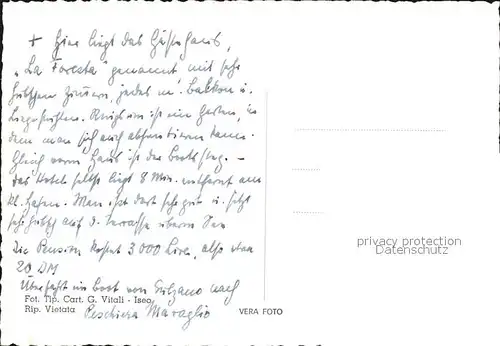 + Hier liegt das Gästehaus,
"La Foresta" genannt, mit sehr
hübschen Zimmern, jedes m. Balkon u.
Liegestühlen. Ringsum ist ein Garten, in
dem man sich auch absentieren kann.
Gleich vorm Haus ist der Bootssteg. –
Das Hotel selbst liegt 8 Min. entfernt am
kl. Hafen. Man isst dort sehr gut u. sitzt
sehr hübsch auf d. Terrasse überm See
Die Pension kostet 3000 Lire, also etwa
20 DM
Überfahrt im Boot von Sulzano nach
Fot. Tip. Cart. G. Vitali - Iseo
Rip. Vietata Peschiera Maraglio
VERA FOTO
privacy protection
Datenschutz